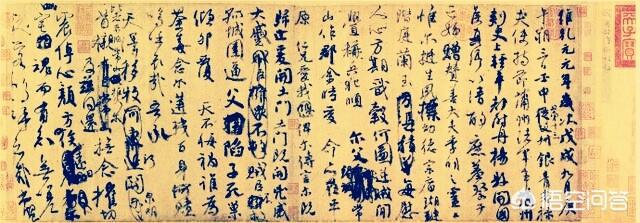 維乾元元年歲次戊戌九月庚
午朔三日壬申第十三叔銀青光祿
夫使持節蒲州諸軍事蒲州
刺史上輕車都尉丹楊縣開國
侯真卿以清酌庶羞祭于
亡姪贈贊善大夫季明之靈
惟爾挺生夙標幼德宗廟瑚璉
階庭蘭玉每慰
人心方期戩穀何圖逆賊間
釁稱兵犯順爾父
山作郡余時受命亦在平
原仁兄愛我俾爾傳言爾既
歸止爰開土門土門既開兇威
大蹙賊臣不救
孤城圍逼父陷子死巢
傾卵覆天不悔禍誰為
荼毒念爾遘殘百身何贖
嗚呼哀哉吾承
天澤移牧河關泉明
首櫬及茲同還撫念摧切
震悼心顏方俟
爾幽宅魂而有知無嗟
久客嗚呼哀哉尚饗
悟空问答